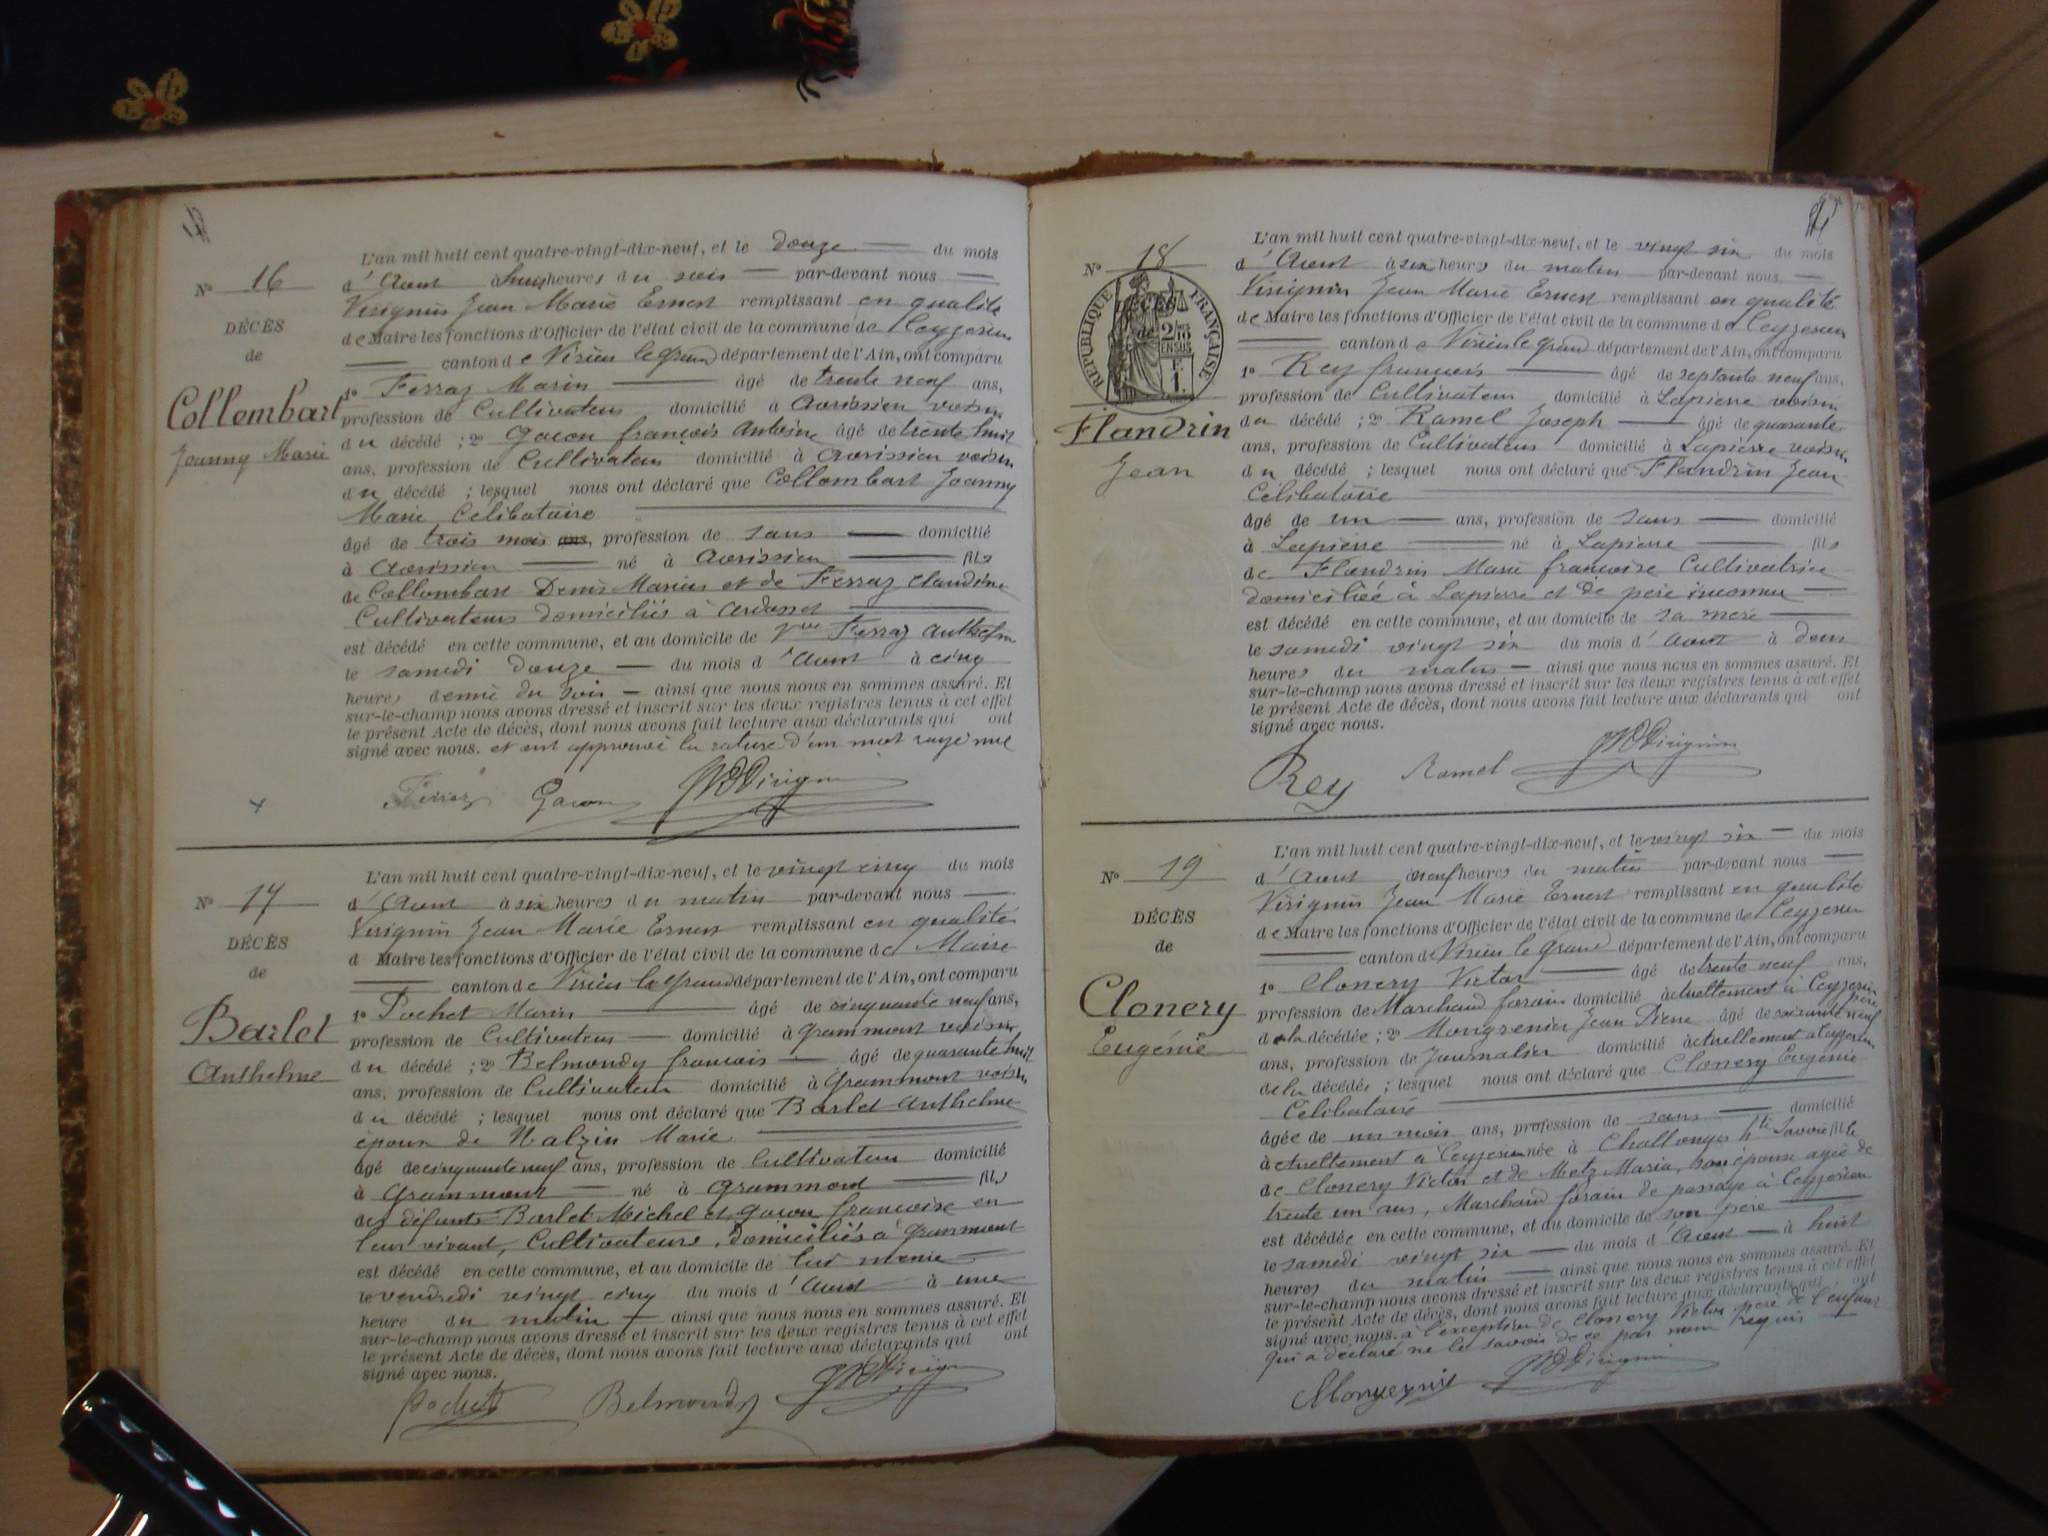 N° 16
DÉCÈS
de
Collombart
Joanny Marie
L'an mil huit cent quatre-vingt-dix-neuf, et le douze du mois
d'Aout à huit heures du soir par-devant nous
Virignin Jean Marie Ernest remplissant en qualité
de Maire les fonctions d'Officier de l'état civil de la commune de Ceyzerieu
canton de Virieu le grand département de l'Ain, ont comparu
1° Ferraz Marin âgé de trente neuf ans,
profession de Cultivateur domicilié à Avrissieu voisin
du décédé ; 2° Gacon françois Antoine âgé de trente huit
ans, profession de Cultivateur domicilié à Avrissieu voisin
du décédé ; lesquel nous ont déclaré que Collombart Joanny
Marie Célibataire
âgé de trois mois ans, profession de sans domicilié
à Avrissieu né à Avrissieu fils
de Collombart Denis Marius et de Ferraz Claudine
Cultivateurs domiciliés à
est décédé en cette commune, et au domicile de Vve Ferraz Anthelme
le samedi douze du mois d'Aout à cinq
heures demie du soir ainsi que nous nous en sommes assuré. Et
sur-le-champ nous avons dressé et inscrit sur les deux registres tenus à cet effet
le présent Acte de décès, dont nous avons fait lecture aux déclarants qui ont
signé avec nous. et ont approuvé la rature d'un mot rayé nul
Ferraz Gacon JM Virignin
N° 17
DÉCÈS
de
Barlet
Anthelme
L'an mil huit cent quatre-vingt-dix-neuf, et le vingt cinq du mois
d'Aout à six heures du matin par-devant nous
Virignin Jean Marie Ernest remplissant en qualité
d Maire les fonctions d'Officier de l'état civil de la commune de Maire
canton de Virieu le Grand département de l'Ain, ont comparu
1° Pochet Marin âgé de cinquante neuf ans,
profession de Cultivateur domicilié à Grammont voisin
du décédé ; 2° Belmondy françois âgé de quarante huit
ans, profession de Cultivateur domicilié à Grammont voisin
du décédé ; lesquel nous ont déclaré que Barlet Anthelme
époux de Nalzin Marie
âgé de cinquante neuf ans, profession de Cultivateur domicilié
à Grammont né à Grammont fils
des défunts Barlet Michel et Gacon françoise en
leur vivant, Cultivateurs, domiciliés à Grammont
est décédé en cette commune, et au domicile de lui même
le vendredi vingt cinq du mois d'Aout à une
heure du matin ainsi que nous nous en sommes assuré. Et
sur-le-champ nous avons dressé et inscrit sur les deux registres tenus à cet effet
le présent Acte de décès, dont nous avons fait lecture aux déclarants qui ont
signé avec nous.
Pochet Belmondy JM Virignin
N° 18
RÉPUBLIQUE FRANÇAISE
2/10es
EN SUS
F.
1.
Flandrin
Jean
L'an mil huit cent quatre-vingt-dix-neuf, et le vingt six du mois
d'Aout à six heures du matin par-devant nous,
Virignin Jean Marie Ernest remplissant en qualité
de Maire les fonctions d'Officier de l'état civil de la commune de Ceyzerieu
canton de Virieu le grand département de l'Ain, ont comparu
1° Rey françois âgé de septante neuf ans,
profession de Cultivateur domicilié à Lapierre voisin
du décédé ; 2° Ramel Joseph âgé de quarante
ans, profession de Cultivateur domicilié à Lapierre voisin
du décédé ; lesquel nous ont déclaré que Flandrin Jean
Célibataire
âgé de un ans, profession de sans domicilié
à Lapierre né à Lapierre fils
de Flandrin Marie françoise Cultivatrice
domiciliée à Lapierre et de père inconnu
est décédé en cette commune, et au domicile de sa mère
le samedi vingt six du mois d'Aout à deux
heures du matin ainsi que nous nous en sommes assuré. Et
sur-le-champ nous avons dressé et inscrit sur les deux registres tenus à cet effet
le présent Acte de décès, dont nous avons fait lecture aux déclarants qui ont
signé avec nous.
Rey Ramel JM Virignin
N° 19
DÉCÈS
de
Clonery
Eugénie
L'an mil huit cent quatre-vingt-dix-neuf, et le vingt six du mois
d'Aout à neuf heures du matin par-devant nous
Virignin Jean Marie Ernest remplissant en qualité
de Maire les fonctions d'Officier de l'état civil de la commune de Ceyzerieu
canton de Virieu le Grand département de l'Ain, ont comparu
1° Clonery Victor âgé de trente neuf ans,
profession de Marchand forain domicilié actuellement à Ceyzerieu père
de la décédée ; 2° Jean Pierre âgé de soixante neuf
ans, profession de Journalier domicilié actuellement à Ceyzerieu
de la décédée ; lesquel nous ont déclaré que Clonery Eugénie
Célibataire
âgée de un mois ans, profession de sans domicilié
actuellement à Ceyzerieu née à Challonges Hte Savoie fille
de Clonery Victor et de Metz Maria, son épouse agée de
trente un ans, Marchand forain de passage à Ceyzerieu
est décédée en cette commune, et au domicile de son père
le samedi vingt six du mois d'Aout à huit
heures du matin ainsi que nous nous en sommes assuré. Et
sur-le-champ nous avons dressé et inscrit sur les deux registres tenus à cet effet
le présent Acte de décès, dont nous avons fait lecture aux déclarants qui ont
signé avec nous. à l'exception de Clonery Victor père de l'enfant
qui a déclaré ne le savoir de ce par nous requis
JM Virignin